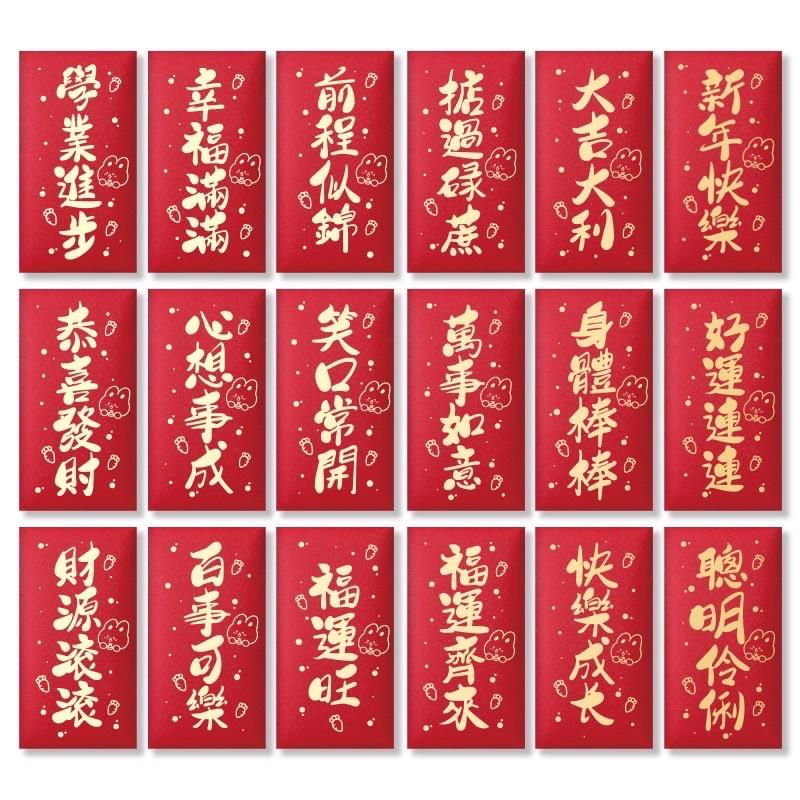 學業進步
幸福滿滿
前程似錦
掂過碌蔗
大吉大利
新年快樂
恭喜發財
心想事成
笑口常開
萬事如意
身體棒棒
好運連連
財源滾滾
百事可樂
福運旺
福運齊來
快樂成长
聰明伶俐